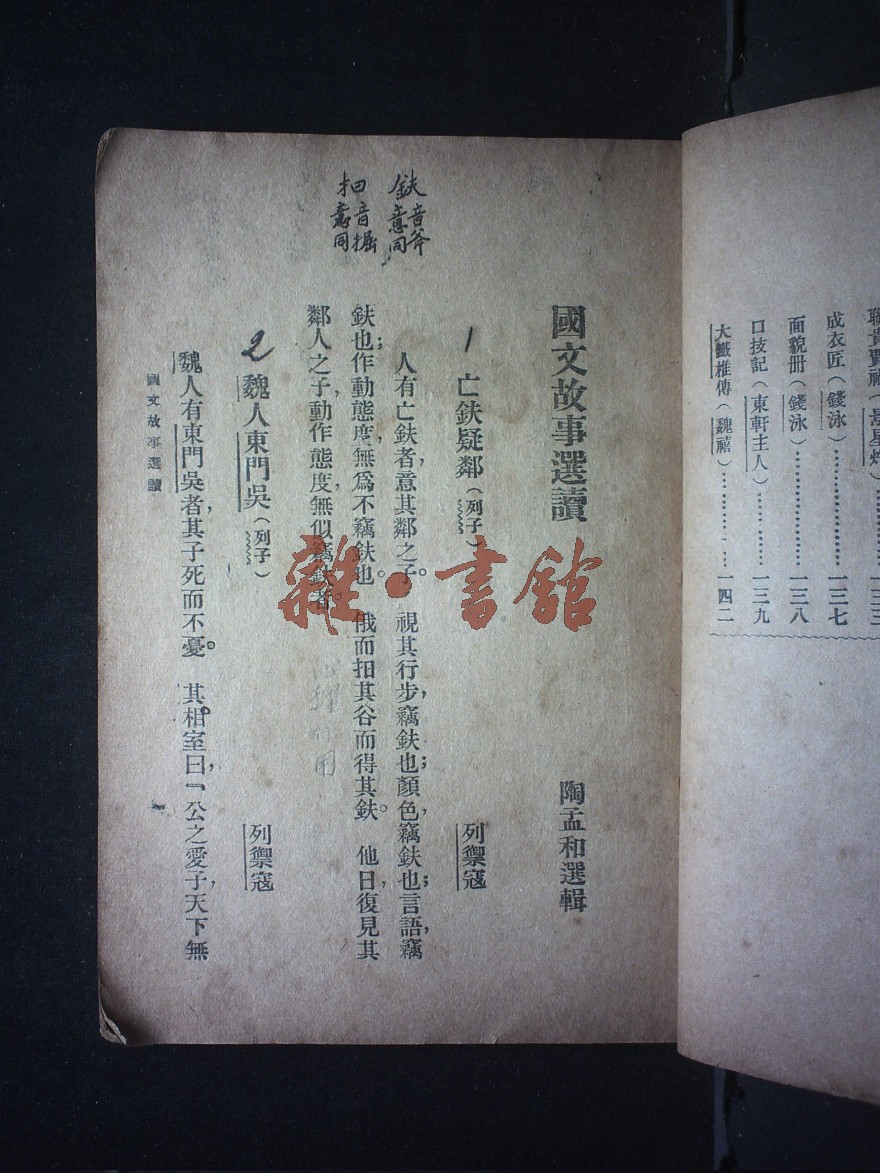 聯貴賈禍（
成衣匠（錢泳）………………一三七
面貌册（錢泳）………………一三八
口技記（東軒主人）…………一三九
大鐵椎傳（魏禧）……………一四二
國文故事選讀
陶孟和選輯
1 亡鈇疑鄰（列子）
列禦寇
人有亡鈇者，意其鄰之子。視其行步，竊鈇也；顏色，竊鈇也；言語，竊
鈇也；作動態度，無爲不竊鈇也。俄而抇其谷而得其鈇。他日，復見其
鄰人之子，動作態度，無似竊鈇者。
2 魏人東門吳（列子）
列禦寇
魏人有東門吳者，其子死而不憂。其相室曰，「公之愛子，天下無
國文故事選讀
鈇音斧
意同
抇音掘
意同
雜·書館